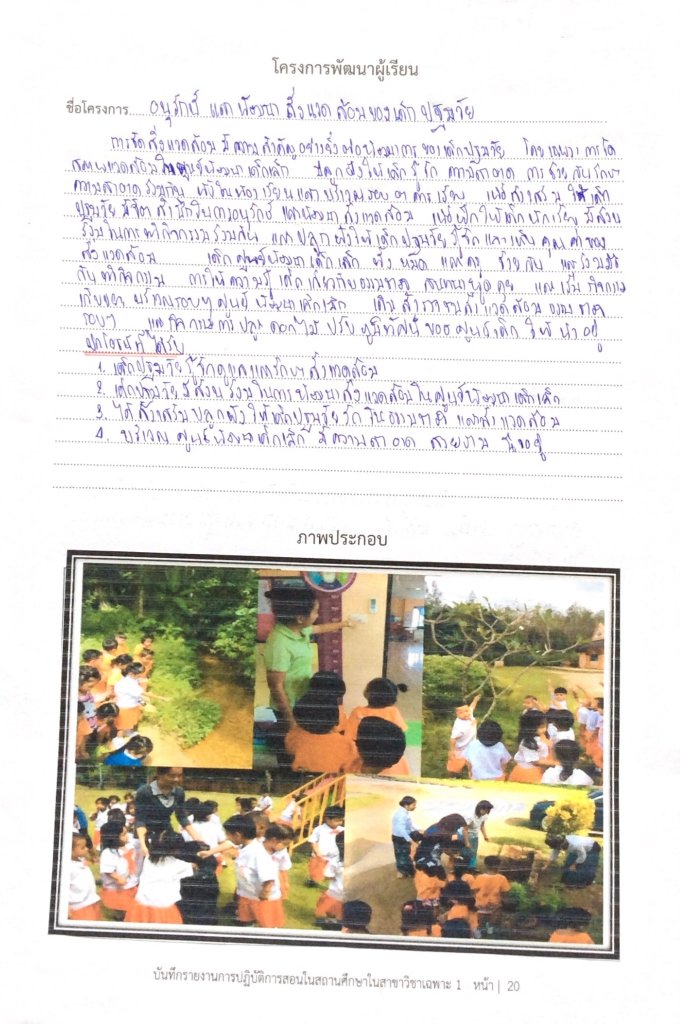 โครงการพัฒนาผู้เรียน
ชื่อโครงการ อนุรักษ์ และ พัฒนา สิ่งแวดล้อมของเด็ก ปฐมวัย
การจัดสิ่งแวดล้อม มีความสำคัญอย่างยิ่งต่อพัฒนาการ ของเด็กปฐมวัย โดยเฉพาะการจัด
สภาพแวดล้อมในศูนย์พัฒนาเด็กเล็ก ปลูกฝังให้เด็กรู้จัก ความสะอาด การช่วยกันรักษา
ความสะอาดร่วมกัน ทั้งในห้องเรียนและบริเวณรอบอาคารเรียน เพื่อส่งเสริม ให้เด็ก
ปฐมวัยมีจิตสำนึกในการอนุรักษ์ และพัฒนาสิ่งแวดล้อม เพื่อฝึกให้เด็กนักเรียน มีส่วน
ร่วมในการทำกิจกรรมร่วมกัน และปลูกฝังให้เด็กปฐมวัยรู้จักและเห็นคุณค่าของ
สิ่งแวดล้อม เด็กศูนย์พัฒนาเด็กเล็ก ทั้งหมด และครู ช่วยกัน และร่วมมือ
กันทำกิจกรรม การให้ความรู้เด็กเกี่ยวกับธรรมชาติ สนทนาพูดคุย และเริ่มกิจกรรม
เก็บขยะ บริเวณรอบๆ ศูนย์พัฒนาเด็กเล็ก เดินสำรวจชมสิ่งแวดล้อม ธรรมชาติ
รอบๆ และกิจกรรมการปลูกดอกไม้ ปรับภูมิทัศน์ ของศูนย์เด็ก ให้น่าอยู่
ประโยชน์ที่ได้รับ
1. เด็กปฐมวัยรู้จักดูแลและรักษาสิ่งแวดล้อม
2. เด็กปฐมวัยมีส่วนร่วมในการพัฒนาสิ่งแวดล้อมในศูนย์พัฒนาเด็กเล็ก
3. ได้ส่งเสริมปลูกฝังให้เด็กปฐมวัยรักในธรรมชาติ และสิ่งแวดล้อม
4. บริเวณศูนย์พัฒนาเด็กเล็ก มีความสะอาด สวยงาม น่าอยู่
ภาพประกอบ
บันทึกรายงานการปฏิบัติการสอนในสถานศึกษาในสาขาวิชาเฉพาะ 1 หน้า | 20